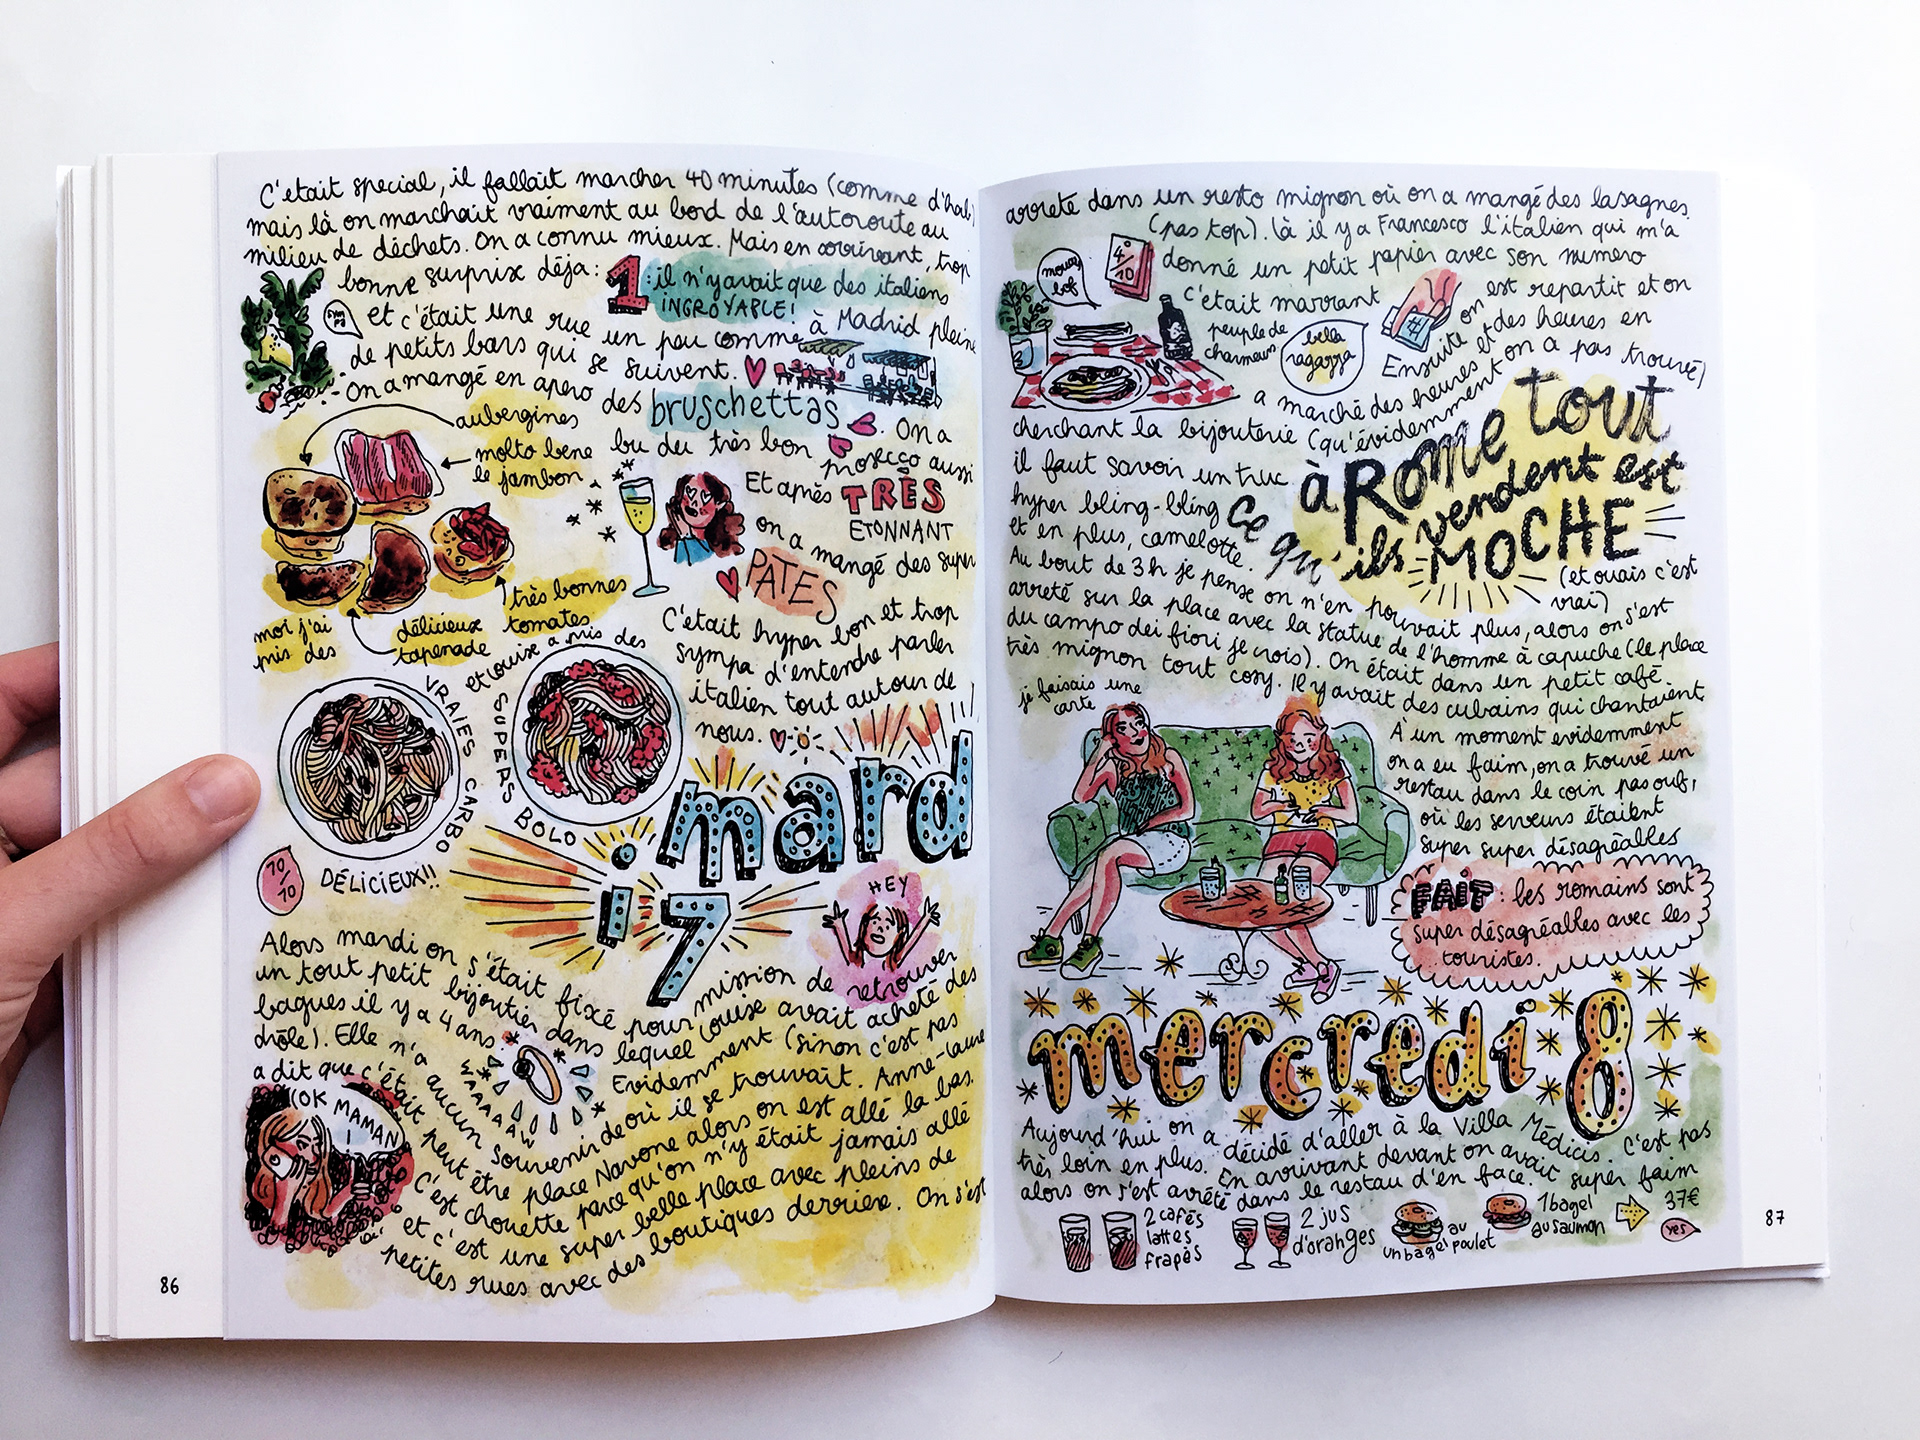 C'etait special, il fallait marcher 40 minutes (comme d'hab)
mais là on marchait vraiment au bord de l'autoroute au
milieu de déchets. On a connu mieux. Mais en arrivant, trop
bonne surprix déja :
1 : il n'y avait que des italiens
INCROYABLE!
sympa
et c'était une rue un peu comme à Madrid pleine
de petits bars qui se suivent.
On a mangé en apero des bruschettas. On a
bu du très bon prosecço aussi
aubergines
molto bene
le jambon
très bonnes
tomates
délicieuse
tapenade
Et après TRÈS
ETONNANT
on a mangé des super
PÂTES
C'était hyper bon et trop
sympa d'entendre parler
italien tout autour de
nous.
moi j'ai
mis des
VRAIES CARBO
et Louise a mis des
SUPERS BOLO
10/10
DÉLICIEUX!!
mardi 7
HEY
Alors mardi on s'était fixé pour mission de retrouver
un tout petit bijoutier dans lequel Louise avait acheté des
bagues il y a 4 ans. Evidemment (sinon c'est pas
drôle). Elle n'a aucun souvenir de où il se trouvait. Anne-Laure
a dit que c'était peut être place Navone alors on est allé la bas.
C'est chouette parce qu'on n'y était jamais allé
et c'est une super belle place avec pleins de
petites rues avec des boutiques derrière. On s'est
WAAAAAW
OK MAMAN
86
arreté dans un resto mignon où on a mangé des lasagnes
(pas top). Là il y a Francesco l'italien qui m'a
donné un petit papier avec son numero
c'était marrant
mouay
bof
4/10
peuple de
charmeurs
bella
ragazza
Ensuite on est repartit et on
a marché des heures et des heures en
cherchant la bijouterie (qu'évidemment on a pas trouvé)
il faut savoir un truc
à ROME tout
ce qu'ils vendent est
MOCHE
hyper bling-bling
et en plus, camelotte.
(et ouais c'est
vrai)
Au bout de 3h je pense on n'en pouvait plus, alors on s'est
arreté sur la place avec la statue de l'homme à capuche (le place
du campo dei fiori je crois). On était dans un petit café
très mignon tout cosy. Il y avait des cubains qui chantaient.
je faisais une
carte
À un moment evidemment
on a eu faim, on a trouvé un
restau dans le coin pas ouf,
où les serveurs étaient
super super désagréables
FAIT : les romains sont
super désagréables avec les
touristes.
mercredi 8
Aujourd'hui on a décidé d'aller à la Villa Médicis. C'est pas
très loin en plus. En arrivant devant on avait super faim
alors on s'est arrété dans le restau d'en face.
2 cafés
lattes
frapés
2 jus
d'oranges
un bagel au
poulet
1 bagel
au saumon
37€
yes
87